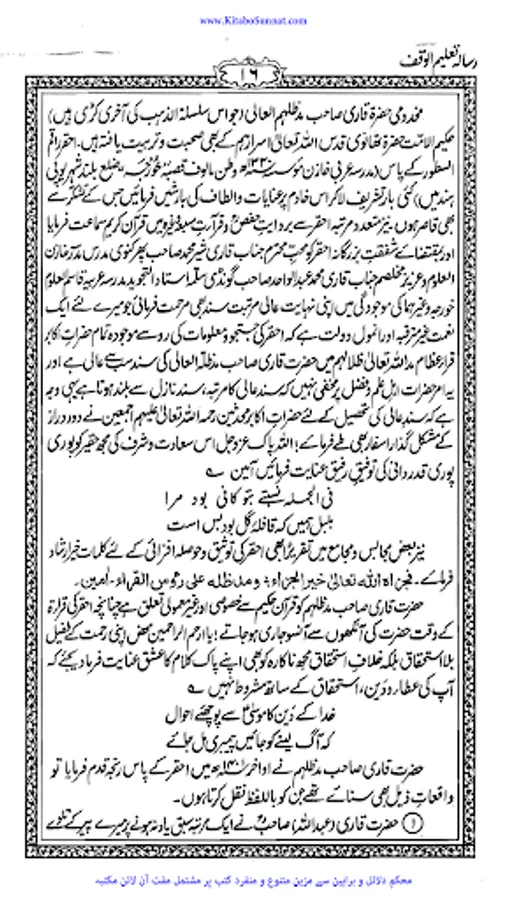 www.KitaboSunnat.com
رسالہ تعلیم الوقف
۱۶
مخدومی حضرۃ قاری صاحب مدظلہم العالی (جو اس سلسلۃ الذہب کی آخری کڑی ہیں)
حکیم الامت حضرۃ تھانوی قدس اللہ تعالیٰ اسرارہم کے بھی صحبت و تربیت یافتہ ہیں۔ احقر راقم
السطور کے پاس (مدرسہ عربی خازن وطن مالوف قصبہ خورجہ، ضلع بلند شہر یوپی
ہند میں) کئی بار تشریف لا کر اس خادم پر عنایات و الطاف کی بارشیں فرمائیں جس کے تشکر سے
بھی قاصر ہوں۔ نیز متعدد مرتبہ احقر سے بروایت حفص و قراءت میں قرآن کریم سماعت فرمایا
اور بمقتضائے شفقت بزرگانہ احقر کو محب محترم جناب قاری شیر محمد صاحب مدرس مدرسہ خازن
العلوم و عزیز مخلصم جناب قاری محمد عبدالواحد صاحب گونڈی سلمہ استاد التجوید مدرسہ عربیہ قاسم العلوم
خورجہ وغیرہما کی موجودگی میں اپنی نہایت عالی مرتبت سند بھی مرحمت فرمائی جو میرے لئے ایک
نعمت غیر مترقبہ اور انمول دولت ہے کہ احقر کی جستجو و معلومات کی رو سے موجودہ تمام حضرات اکابر
قراء عظام مد اللہ تعالیٰ ظلالہم میں حضرت قاری صاحب مدظلہ العالی کی سند سب سے عالی ہے اور
یہ امر حضرات اہل علم و فضل پر مخفی نہیں کہ سند عالی کا مرتبہ، سند نازل سے بلند ہوتا ہے یہی وجہ
ہے کہ سند عالی کی تحصیل کے لئے حضرات اکابر محدثین رحمۃ اللہ تعالیٰ علیہم اجمعین نے دور دراز
کے مشکل گذار اسفار بھی طے فرمائے؛ اللہ پاک عزوجل اس سعادت و شرف کی مجھ حقیر کو پوری
پوری قدر دانی کی توفیق رفیق عنایت فرمائیں آمین ؎
فی الجملہ نسبتے بتو کافی بود مرا
بلبل ہمیں کہ قافلۂ گل بود بس است
نیز بعض مجالس و مجامع میں تقریراً بھی احقر کی توثیق و حوصلہ افزائی کے لئے کلمات خیر ارشاد
فرمائے۔ فجزاہ اللہ تعالیٰ خیر الجزاء و مدظلہ علی رؤس القراء۔ اٰمین۔
حضرت قاری صاحب مدظلہم کو قرآن حکیم سے خصوصی اور غیر معمولی تعلق ہے چنانچہ احقر کی قراءۃ
کے وقت حضرت کی آنکھوں سے آنسو جاری ہو جاتے؛ یا ارحم الراحمین محض اپنی رحمت کے طفیل
بلا استحقاق بلکہ خلاف استحقاق مجھ ناکارہ کو بھی اپنے پاک کلام کا عشق عنایت فرما دیجئے کہ
آپ کی عطا و دین، استحقاق کے ساتھ مشروط نہیں ؎
خدا کے دین کا موسیٰ سے پوچھئے احوال
کہ آگ لینے کو جائیں پیمبری مل جائے
حضرت قاری صاحب مدظلہم نے اواخر میں احقر کے پاس رنجہ قدم فرمایا تو
واقعات ذیل بھی سنائے تھے جن کو باللفظ نقل کرتا ہوں۔
① حضرت قاری (عبداللہ) صاحب نے ایک مرتبہ سبق یاد نہ ہونے پر میرے پیر کے تلوے
محکم دلائل و براہین سے مزین متنوع و منفرد کتب پر مشتمل مفت آن لائن مکتبہ